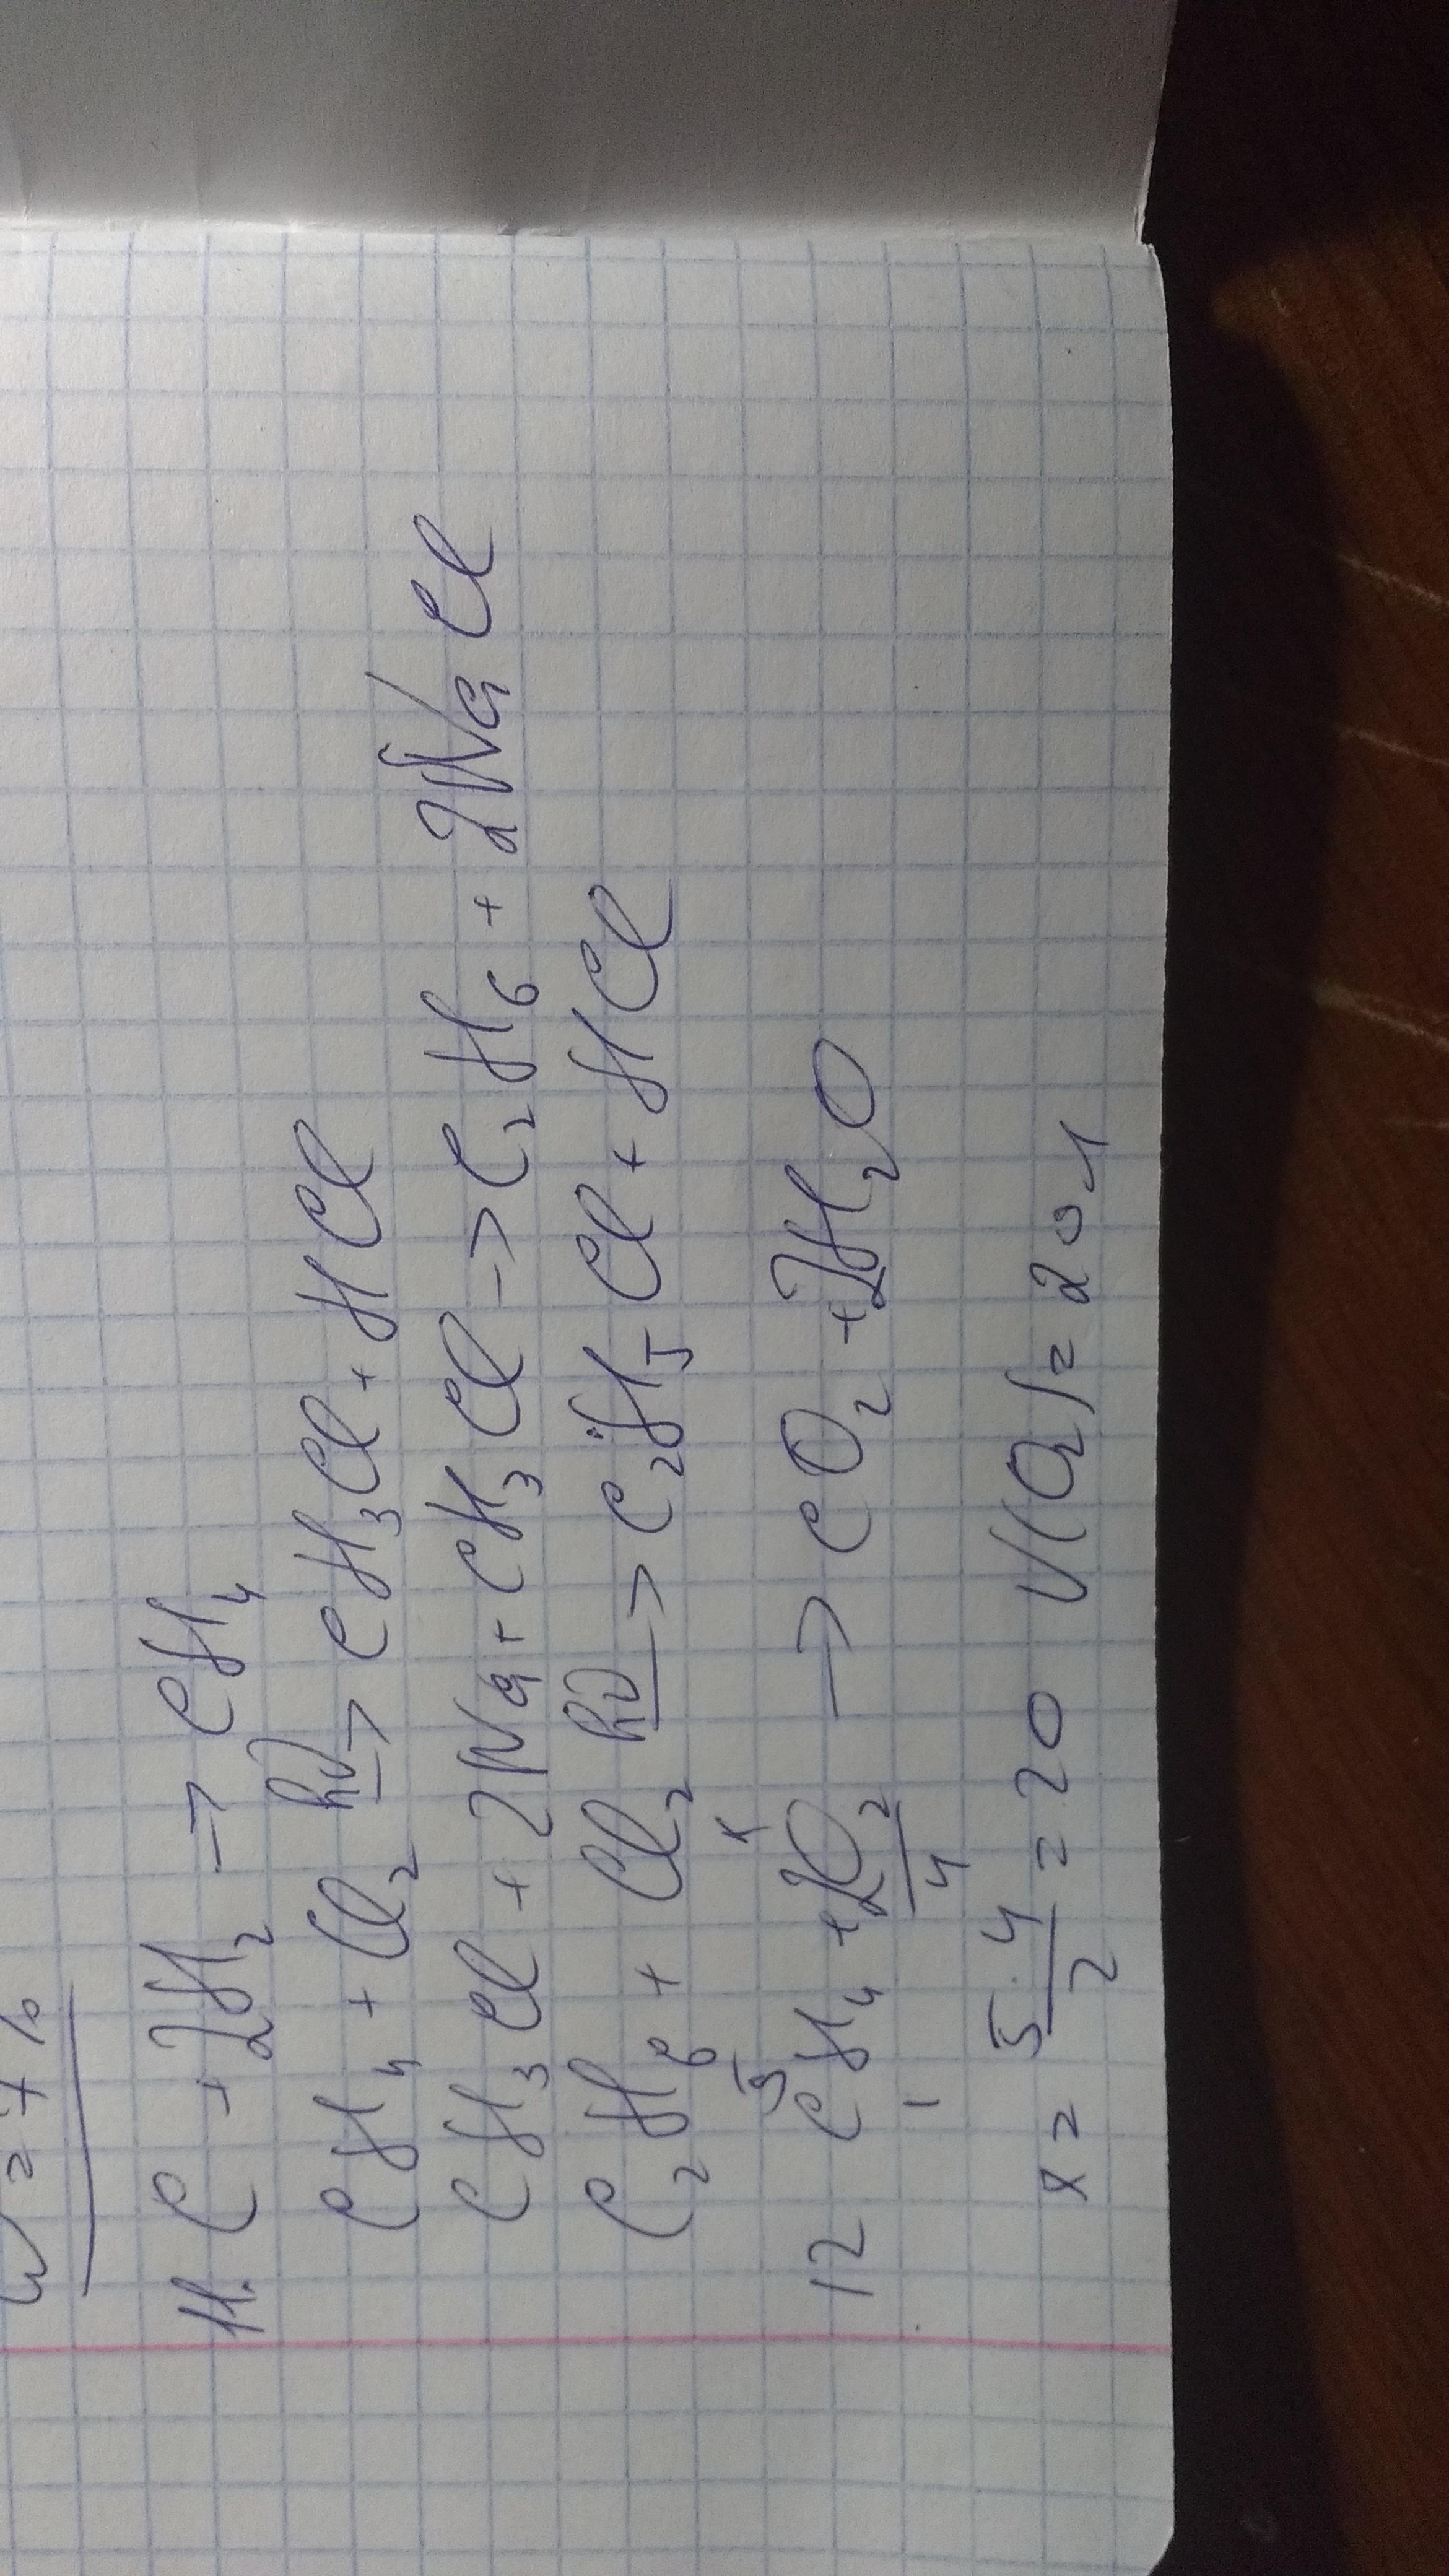 W = 7 %
11. C + 2H2 → CH4
CH4 + Cl2 hν→ CH3Cl + HCl
CH3Cl + 2Na + CH3Cl → C2H6 + 2NaCl
C2H6 + Cl2 hν→ C2H5Cl + HCl
5 x
12 CH4 + 2O2 → CO2 + 2H2O
1 4
x = 5·4/2 = 20 V(O2) = 20 л